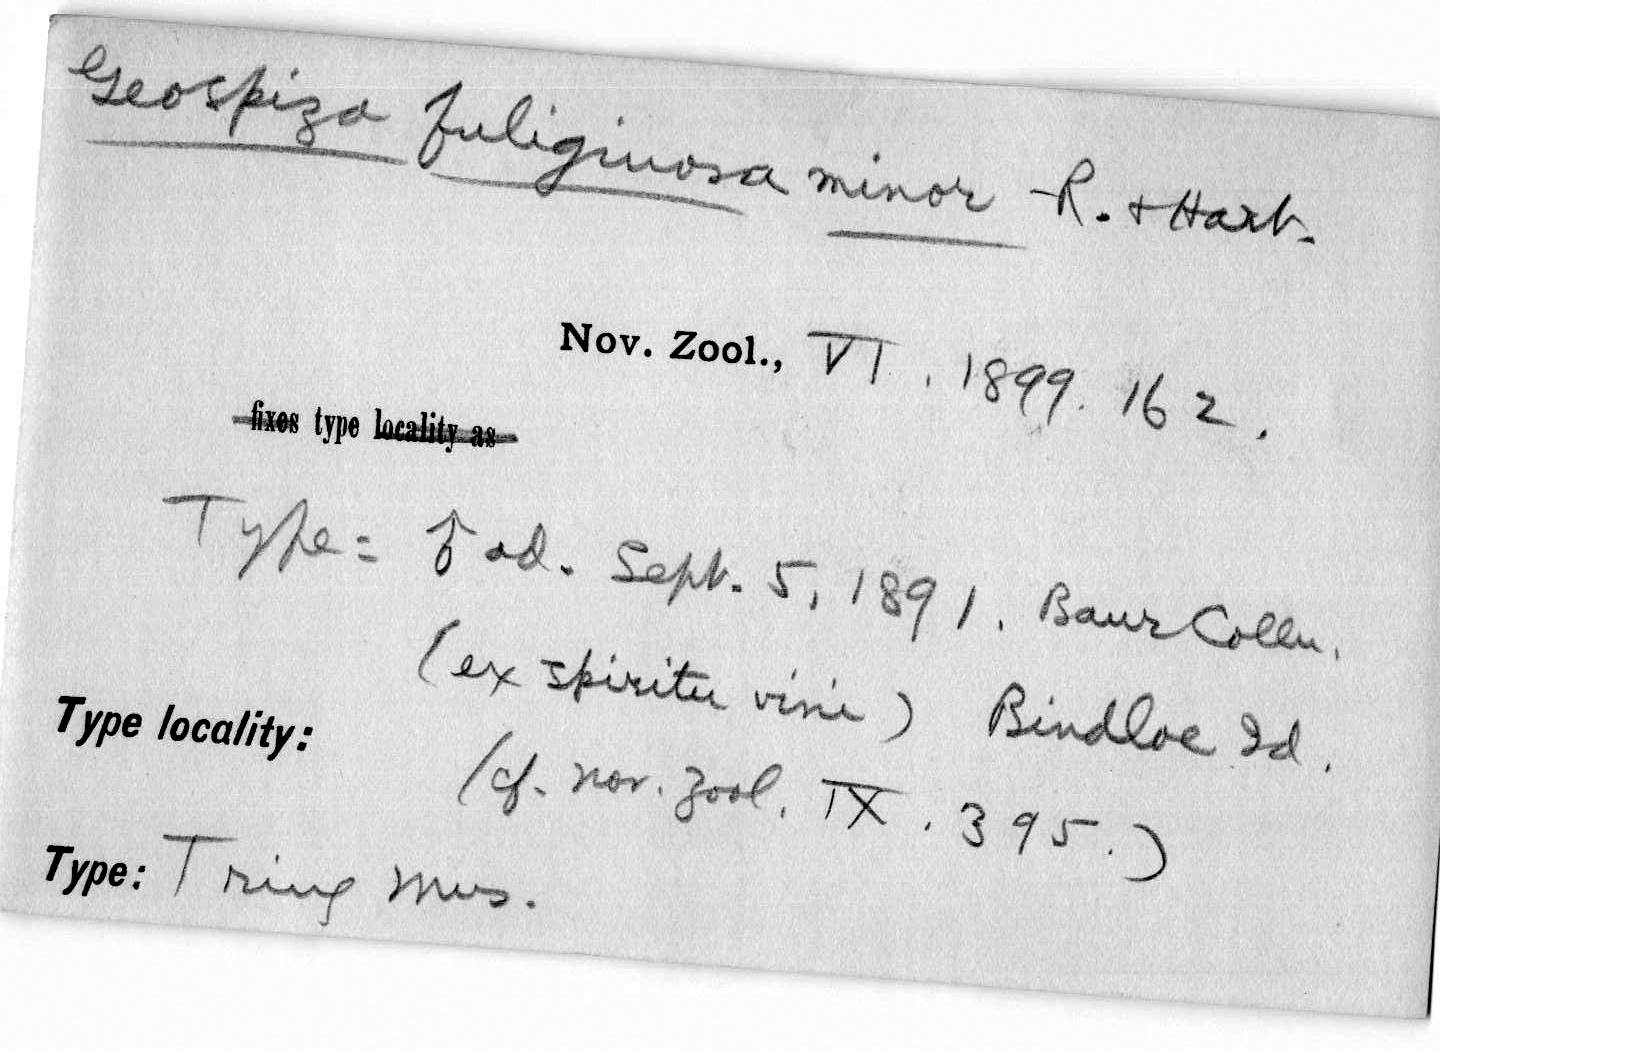 Geospiza fuliginosa minor -R. + Hart.
Nov. Zool., VI. 1899. 162.
fixes type locality as
Type = ♂ ad. Sept. 5, 1891. Baur Colln.
(ex spiritu vini) Bindloe Id.
Type locality:
(cf. Nov. Zool. IX. 395.)
Type: Tring Mus.